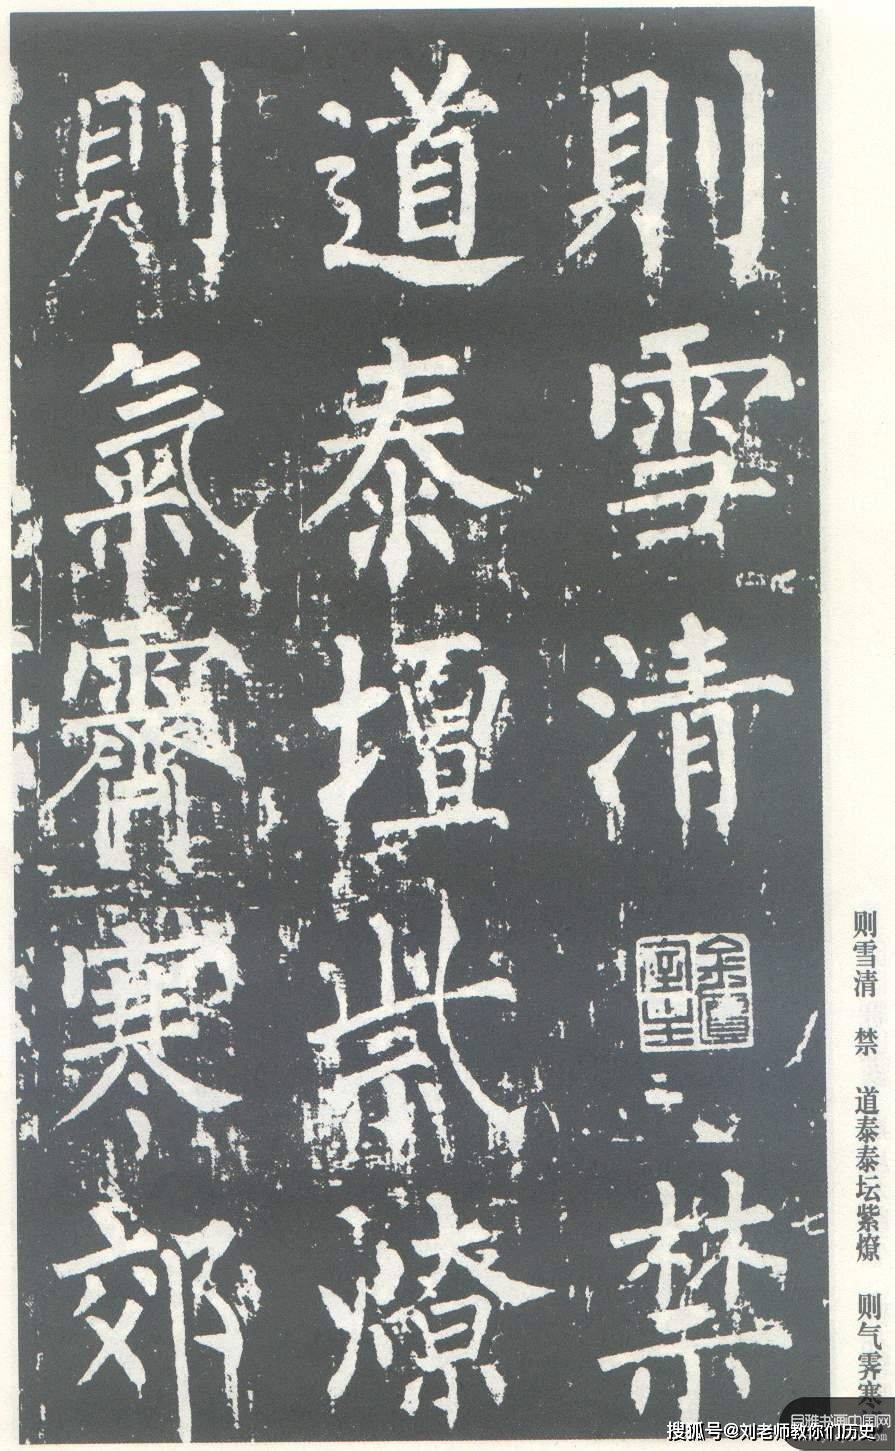 則雪清禁
道泰壇祡燎
則氣霽寒郊
则雪清 禁 道泰泰坛紫燎 则气霁寒
书画中国网
搜狐号@刘老师教你们历史